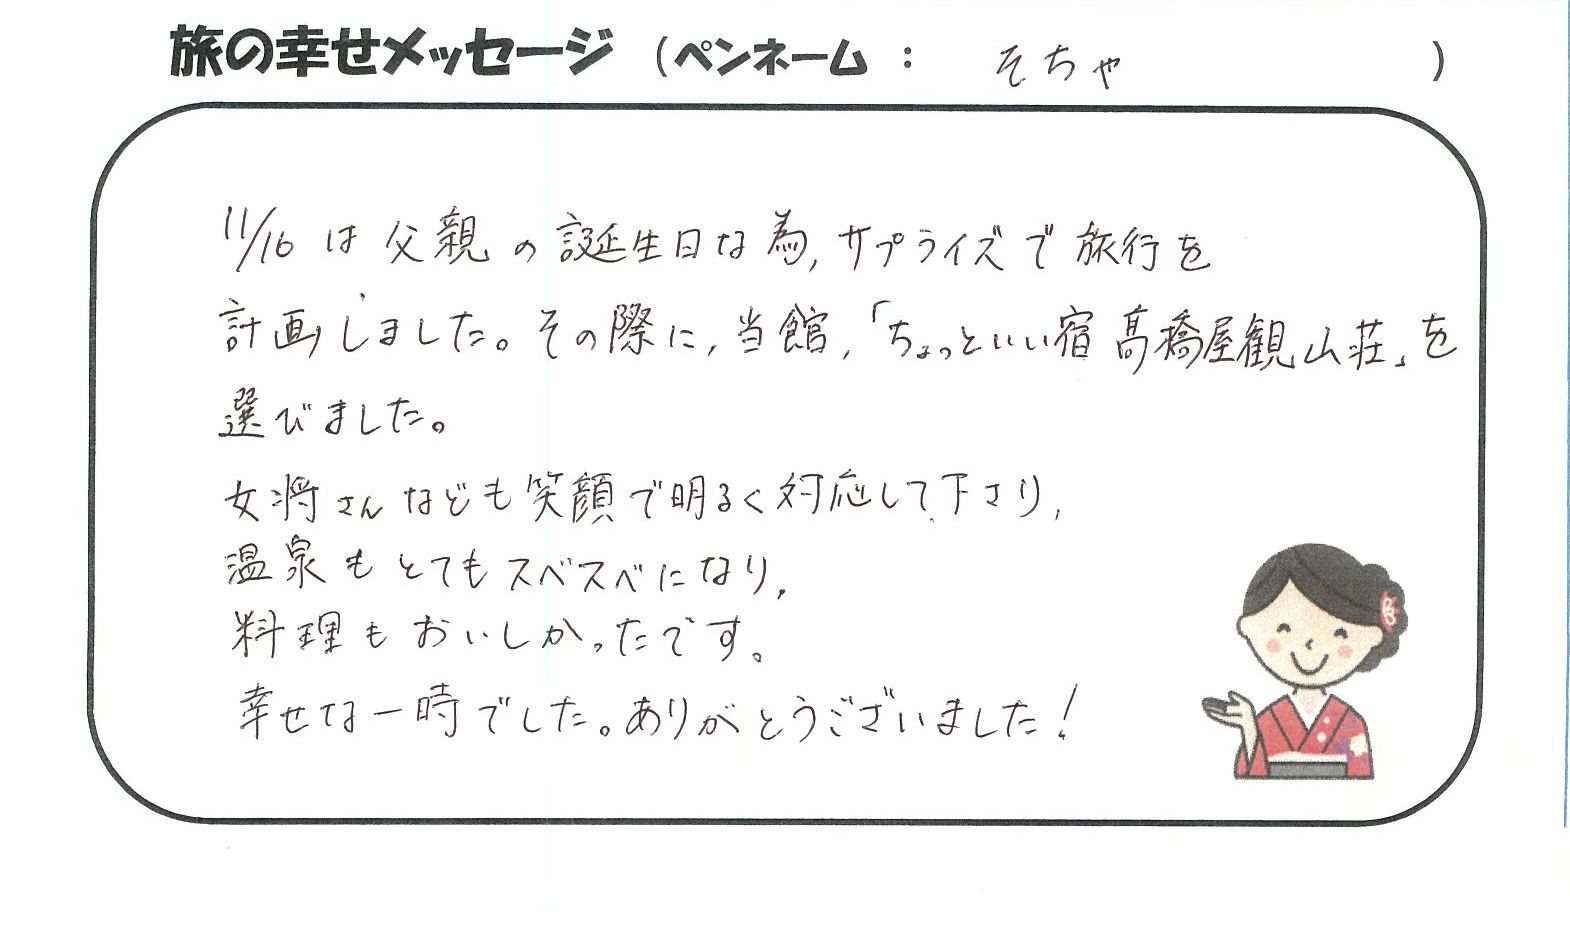 旅の幸せメッセージ (ペンネーム : そちゃ )
11/16 は 父親 の 誕生日な為, サプライズで 旅行を
計画しました。その際に, 当館, 「ちょっといい宿 高橋屋観山荘」を
選びました。
女将さんなども笑顔で明るく対応して下さり,
温泉もとてもスベスベになり,
料理もおいしかったです。
幸せな一時でした。ありがとうございました!